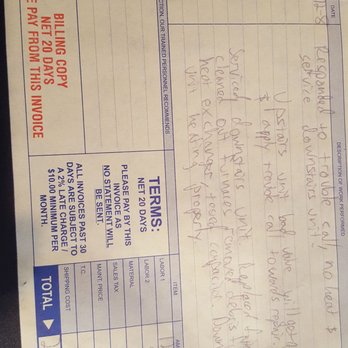 DATE
DESCRIPTION OF WORK PERFORMED
Responded to trouble call no heat &
service downstairs unit
Upstairs unit bad valve, will
& apply trouble call towards repair
Serviced downstairs unit, replaced
cleaned out furnace removed debris
heat exchanger tested
unit heating properly
CTION, OUR TRAINED PERSONNEL RECOMMENDS
BILLING COPY
NET 20 DAYS
E PAY FROM THIS INVOICE
TERMS:
NET 20 DAYS
PLEASE PAY BY THIS
INVOICE AS
NO STATEMENT WILL
BE SENT.
ALL INVOICES PAST 30
DAYS ARE SUBJECT TO
A 2% LATE CHARGE /
$10.00 MINIMUM PER
MONTH.
ITEM
LABOR 1
LABOR 2
MATERIAL
SALES TAX
MAINT. PRICE
T.C.
SHIPPING COST
TOTAL